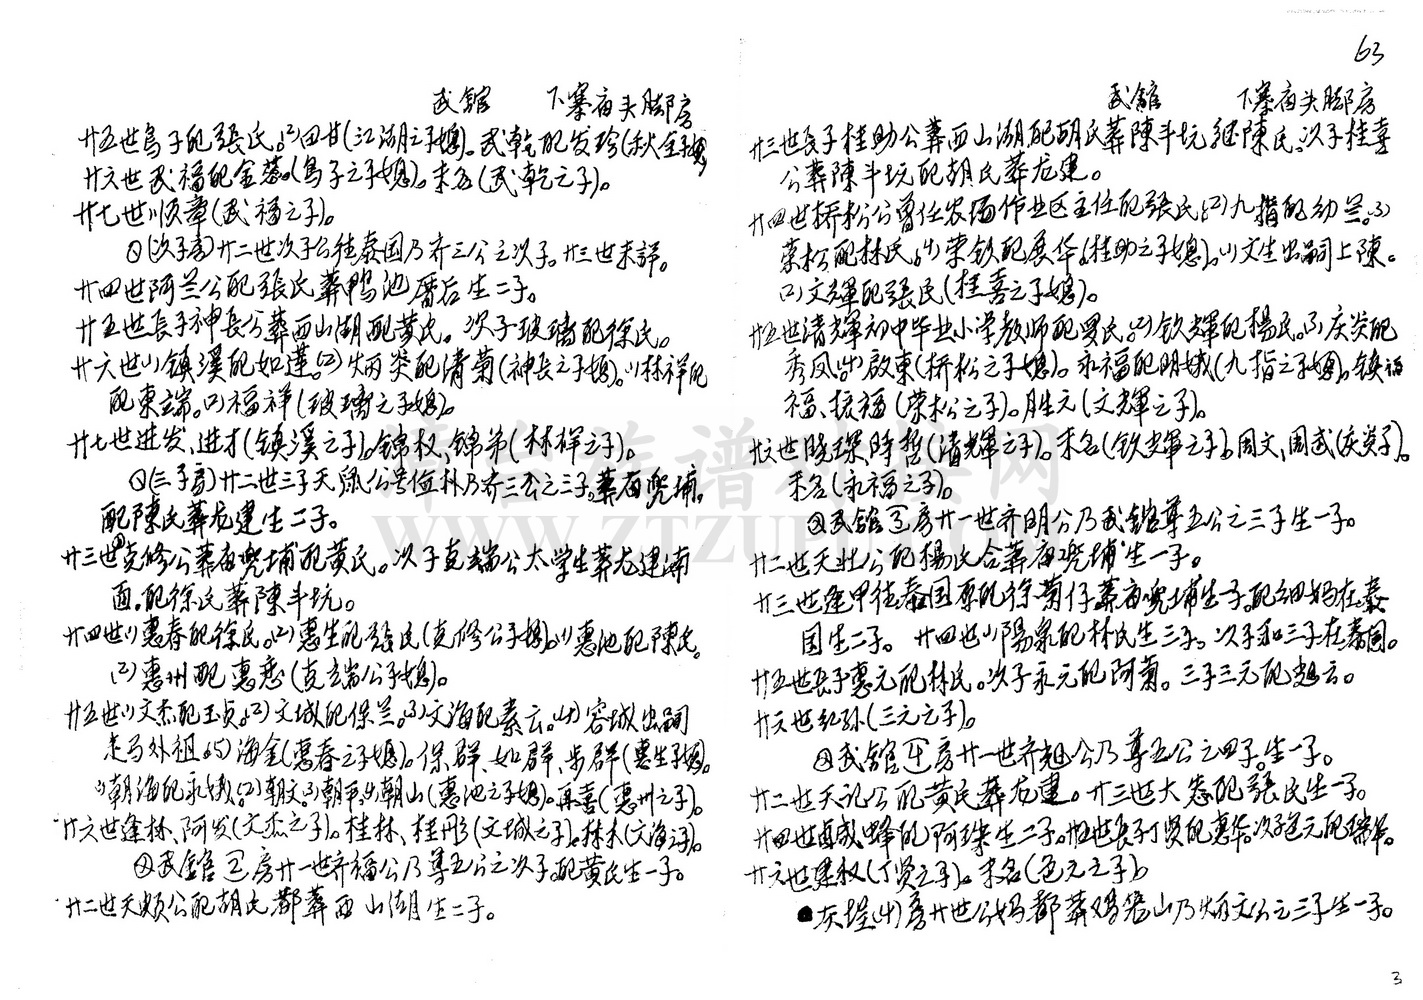 63
武舘 下寨宙头脚房
廿五世鸟子配張氏。(2)田甘(江湖之子媳)。武乾配发珍(秋金子媳)
廿六世武福配金蓉。(鸟子之子媳)。未名(武乾之子)。
廿七世顺章(武福之子)。
(次子房)廿二世次子公往泰国乃齐三公之次子。廿三世未詳。
廿四世阿兰公配張氏葬鸭池厝后生二子。
廿五世長子神長公葬西山湖配黄氏。次子玻璃配徐氏。
廿六世(1)镇溪配如蓮。(2)炳炎配清菊(神長之子媳)。(1)林祥配
配東端。(2)福祥(玻璃之子媳)。
廿七世进发、进才(镇溪之子)。锦权、锦弟(林祥之子)。
(三子房)廿二世三子天鼠公号位朴乃齐三公之三子。葬宙兜埔。
配陳氏葬龙建生二子。
廿三世克修公葬宙兜埔配黄氏。次子克端公太学生葬龙建南
面。配徐氏葬陳斗坑。
廿四世(1)惠春配徐氏。(2)惠生配張氏(克修公子媳)。(1)惠池配陳氏。
(2)惠州配惠慈(克端公子媳)。
廿五世(1)文杰配玉贞。(2)文城配保兰。(3)文海配素云。(4)容城出嗣
走马外祖。(5)海金(惠春之子媳)。保群、如群、步群(惠生子媳)。
(1)朝海配永娥。(2)朝文(3)朝平(4)朝山(惠池之子媳)。再喜(惠州之子)。
廿六世逢林、阿发(文杰之子)。桂林、桂彤(文城之子)。林木(文海子)。
武舘房廿一世齐福公乃尊五公之次子。配黄氏生一子。
廿二世天頗公配胡氏都葬西山湖生二子。
武舘 下寨宙头脚房
廿三世長子桂助公葬西山湖配胡氏葬陳斗坑继陳氏。次子桂喜
公葬陳斗坑配胡氏葬龙建。
廿四世桥松公曾任农场作业区主任配張氏。(2)九指配幼兰。(3)
荣松配林氏。(4)荣钦配展华。(桂助之子媳)。(1)文生出嗣上陳。
(2)文輝配張氏(桂喜之子媳)。
廿五世清輝初中毕业小学教师配罗氏。(2)钦輝配楊氏。(3)庆炎配
秀凤。(4)啟東(桥松之子媳)。永福配明娥(九指之子媳)。镇福
福、振福(荣松之子)。胜元(文輝之子)。
廿六世晓琛、時哲(清輝之子)。未名(钦輝之子)。周文、周武(庆炎子)。
未名(永福之子)。
武舘房廿一世齐明公乃武舘尊五公之三子生一子。
廿二世天壮公配楊氏合葬宙兜埔生一子。
廿三世逢甲往泰国原配徐菊仔葬宙兜埔生一子。配细妈在泰
国生二子。廿四世(1)陽泉配林氏生三子。次子和三子在泰国。
廿五世長子惠元配林氏。次子永元配阿菊。三子三元配楚云。
廿六世红孙(三元之子)。
武舘房廿一世齐翘公乃尊五公之四子。生一子。
廿二世天讯公配黄氏葬龙建。廿三世大怣配張氏生一子。
廿四世卤咸蜂配阿珠生二子。廿五世長子丁贤配惠华。次子色元配瑞華。
廿六世建权(丁贤之子)。未名(色元之子)。
灰埕(4)房廿世公妈都葬鸡笼山乃炳文公之三子生一子。
3